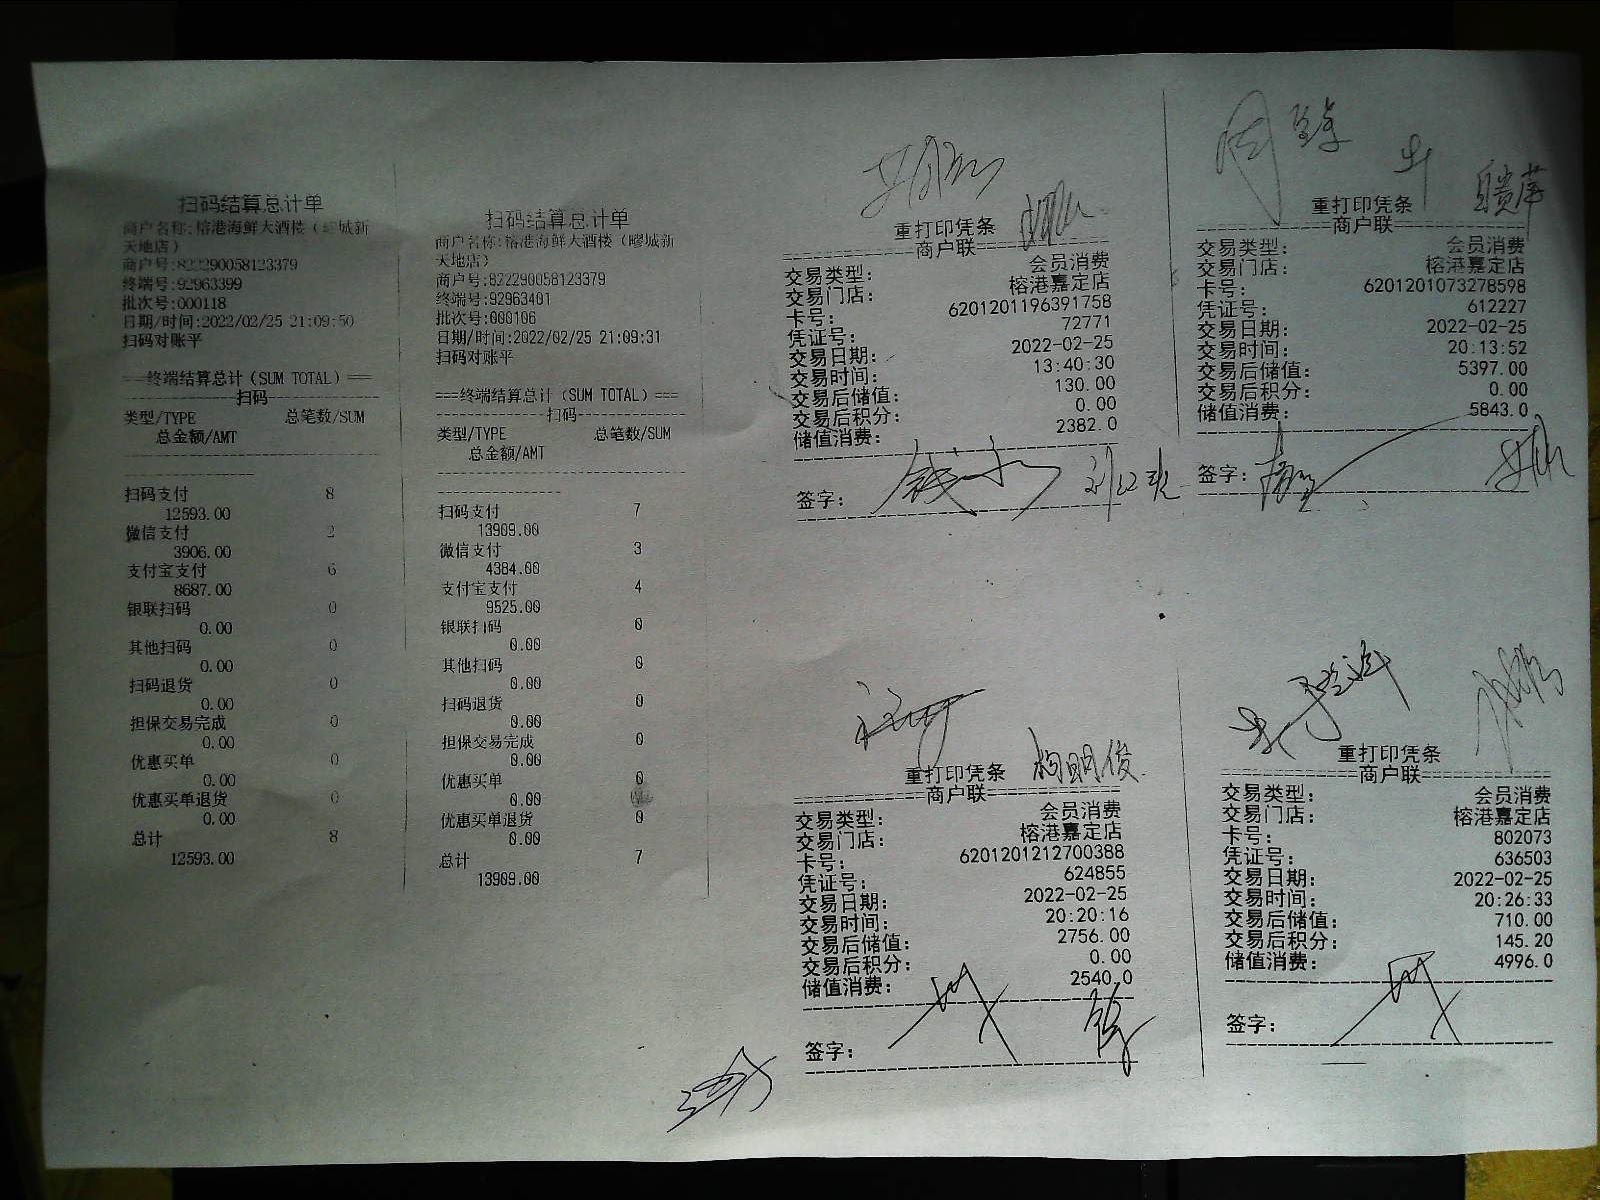 扫码结算总计单
商户名称:榕港海鲜大酒楼（疁城新
天地店）
商户号:822290058123379
终端号:92963399
批次号:000118
日期/时间:2022/02/25 21:09:50
扫码对账平
===终端结算总计（SUM TOTAL）===
扫码
类型/TYPE 总笔数/SUM
总金额/AMT
扫码支付 8
12593.00
微信支付 2
3906.00
支付宝支付 6
8687.00
银联扫码 0
0.00
其他扫码 0
0.00
扫码退货 0
0.00
担保交易完成 0
0.00
优惠买单 0
0.00
优惠买单退货 0
0.00
总计 8
12593.00
扫码结算总计单
商户名称:榕港海鲜大酒楼（疁城新
天地店）
商户号:822290058123379
终端号:92963401
批次号:000106
日期/时间:2022/02/25 21:09:31
扫码对账平
===终端结算总计（SUM TOTAL）===
扫码
类型/TYPE 总笔数/SUM
总金额/AMT
扫码支付 7
13909.00
微信支付 3
4384.00
支付宝支付 4
9525.00
银联扫码 0
0.00
其他扫码 0
0.00
扫码退货 0
0.00
担保交易完成 0
0.00
优惠买单 0
0.00
优惠买单退货 0
0.00
总计 7
13909.00
重打印凭条
商户联
交易类型: 会员消费
交易门店: 榕港嘉定店
卡号: 6201201196391758
凭证号: 72771
交易日期: 2022-02-25
交易时间: 13:40:30
交易后储值: 130.00
交易后积分: 0.00
储值消费: 2382.0
签字:
重打印凭条
商户联
交易类型: 会员消费
交易门店: 榕港嘉定店
卡号: 6201201073278598
凭证号: 612227
交易日期: 2022-02-25
交易时间: 20:13:52
交易后储值: 5397.00
交易后积分: 0.00
储值消费: 5843.0
签字:
重打印凭条
商户联
交易类型: 会员消费
交易门店: 榕港嘉定店
卡号: 6201201212700388
凭证号: 624855
交易日期: 2022-02-25
交易时间: 20:20:16
交易后储值: 2756.00
交易后积分: 0.00
储值消费: 2540.0
签字:
重打印凭条
商户联
交易类型: 会员消费
交易门店: 榕港嘉定店
卡号: 802073
凭证号: 636503
交易日期: 2022-02-25
交易时间: 20:26:33
交易后储值: 710.00
交易后积分: 145.20
储值消费: 4996.0
签字: